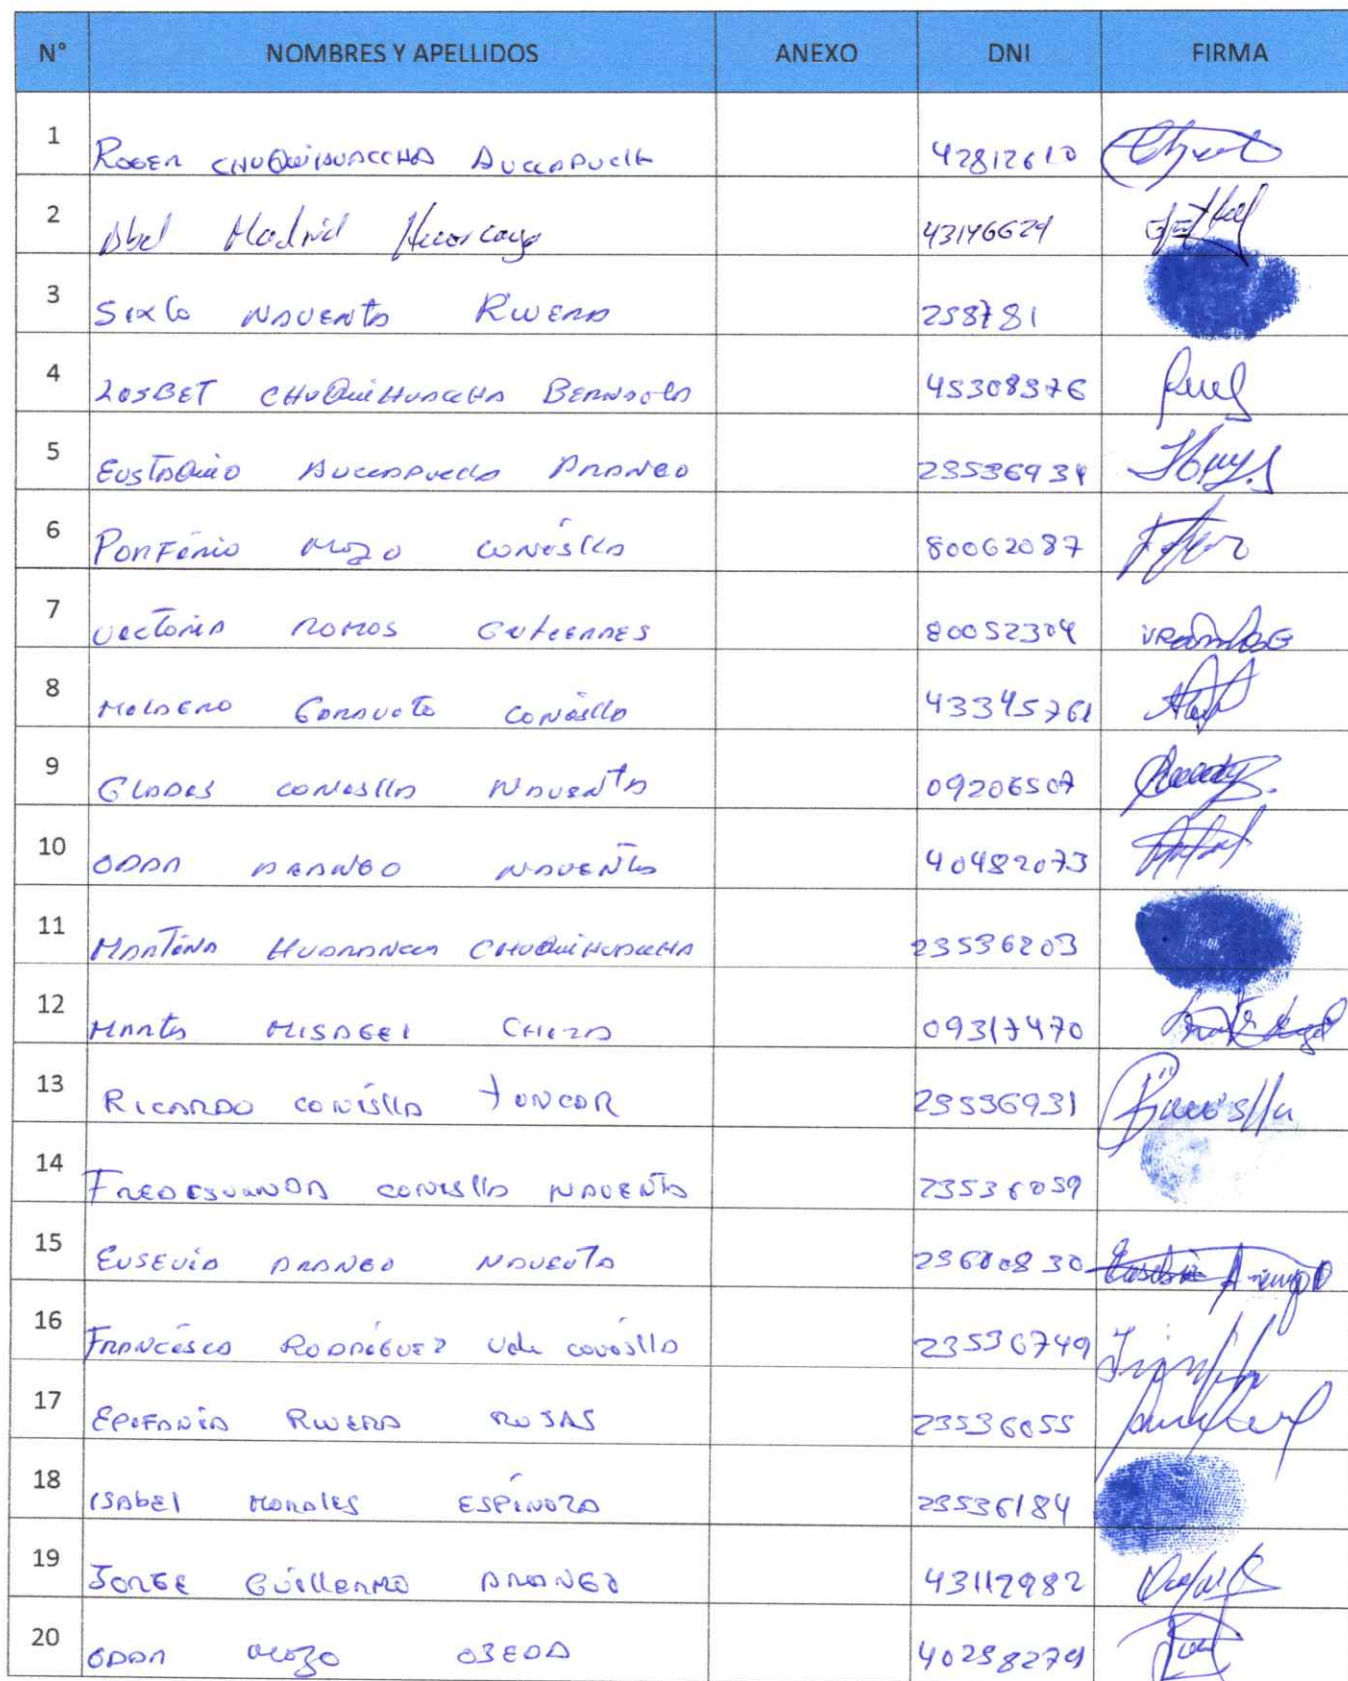 N° NOMBRES Y APELLIDOS ANEXO DNI FIRMA
1 ROGER CHUQUIHUACCHA AUCCAPUCLLA 42812610
2 Abel Madrid Huarcaya 43146629
3 Sixto NAVENTA RIVERA 238781
4 LOSBET CHUQUIHUACCHA BERNAOLA 45308576
5 EUSTAQUIO AUCCAPUCLLA ARANGO 23536934
6 PORFÍRIO MOZO CONISLLA 80062087
7 VICTORIA RAMOS GUTIERRES 80052304 VRAMOSG
8 MOLDERO GARAVITO CONISLLA 43345761
9 GLADES CONISLLA NAVENTA 09206507
10 ODAR ARANGO NAVENTA 40482073
11 MARTINA HUARANCCA CHUQUIHUACCHA 23536203
12 MARTA MISAGEL CHEZA 09317470
13 RICARDO CONISLLA TUNCOR 23536931
14 FREDESVANDA CONISLLA NAVENTA 23536059
15 EUSEVIA ARANGO NAVENTA 23600830 Eusebia Arango
16 FRANCISCA RODRÍGUEZ Vda CONISLLA 23536749
17 EPIFANIA RIVERA ROJAS 23536055
18 ISAbEl MORALES ESPÍNOZA 23536184
19 JORGE GUILLERMO ARANGO 43112982
20 ODAR MOZO OJEDA 40258279